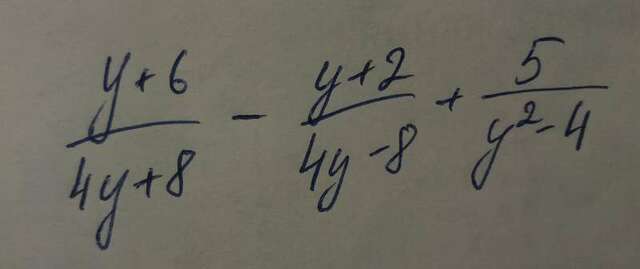 (y+6)/(4y+8) - (y+2)/(4y-8) + 5/(y²-4)